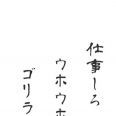 仕事しろ
ウホウホ
ゴリラ